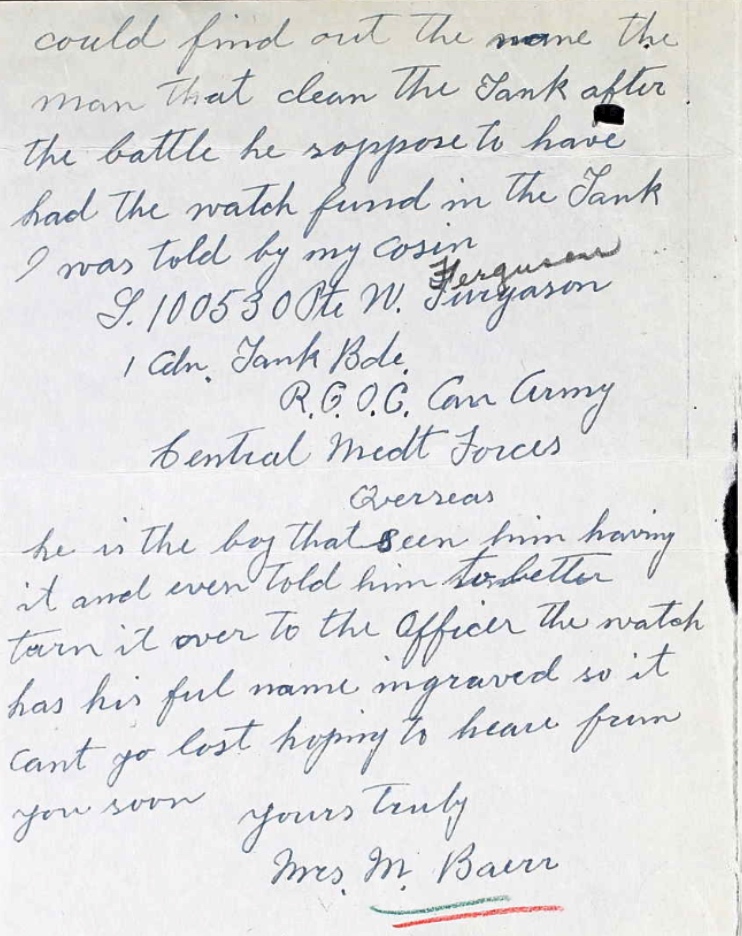 could find out the name the
man that clean the Tank after
the battle he soppose to have
had the watch fund in the Tank
I was told by my cosin
Ferguson
L.100530 Pte W. Furgason
1 Cdn. Tank Bde.
R.C.O.C. Can Army
Central Medt Forces
Overseas
he is the boy that seen him having
it and even told him to better
turn it over to the Officer the watch
has his ful name ingraved so it
cant go lost hoping to heare from
you soon
yours truly
Mrs. M. Baerr